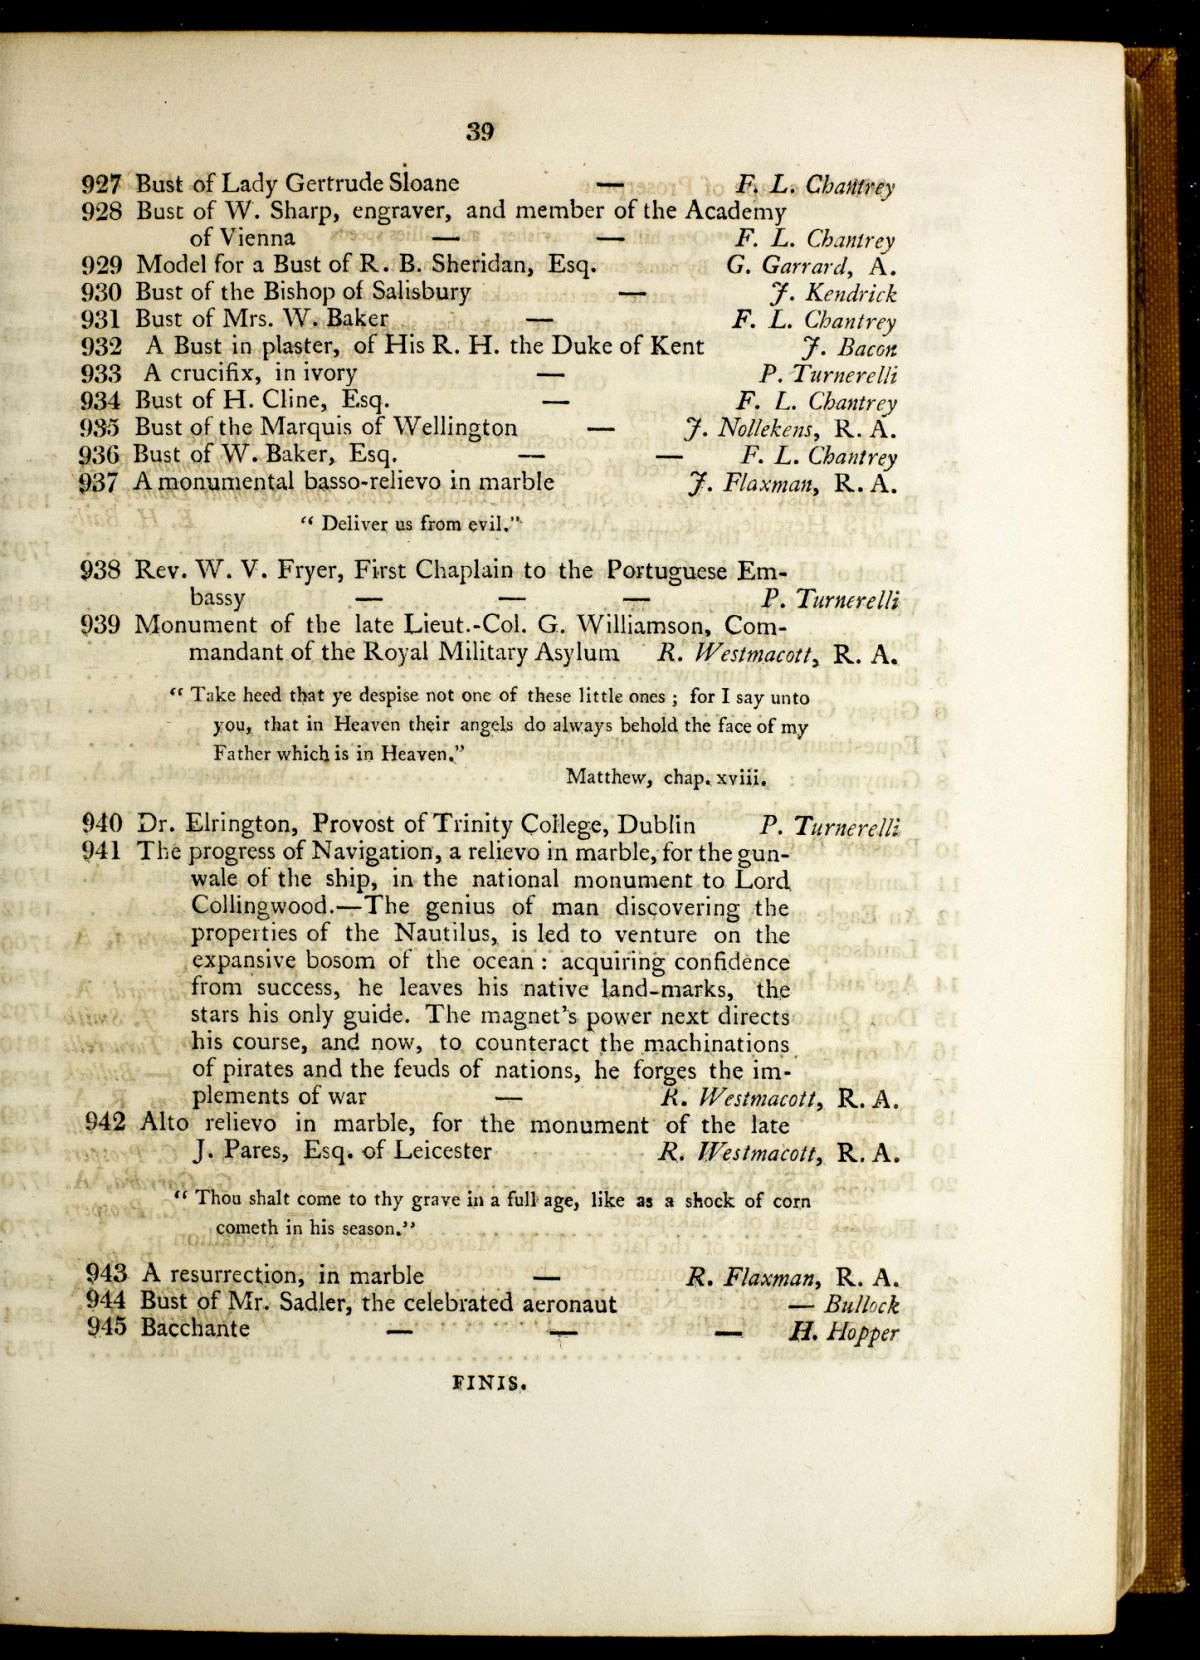 39
927 Bust of Lady Gertrude Sloane — F. L. Chantrey
928 Bust of W. Sharp, engraver, and member of the Academy
of Vienna — — F. L. Chantrey
929 Model for a Bust of R. B. Sheridan, Esq. G. Garrard, A.
930 Bust of the Bishop of Salisbury — J. Kendrick
931 Bust of Mrs. W. Baker — F. L. Chantrey
932 A Bust in plaster, of His R. H. the Duke of Kent J. Bacon
933 A crucifix, in ivory — P. Turnerelli
934 Bust of H. Cline, Esq. — F. L. Chantrey
935 Bust of the Marquis of Wellington — J. Nollekens, R. A.
936 Bust of W. Baker, Esq. — — F. L. Chantrey
937 A monumental basso-relievo in marble J. Flaxman, R. A.
“ Deliver us from evil.”
938 Rev. W. V. Fryer, First Chaplain to the Portuguese Em-
bassy — — — P. Turnerelli
939 Monument of the late Lieut.-Col. G. Williamson, Com-
mandant of the Royal Military Asylum R. Westmacott, R. A.
“ Take heed that ye despise not one of these little ones ; for I say unto
you, that in Heaven their angels do always behold the face of my
Father which is in Heaven.”
Matthew, chap. xviii.
940 Dr. Elrington, Provost of Trinity College, Dublin P. Turnerelli
941 The progress of Navigation, a relievo in marble, for the gun-
wale of the ship, in the national monument to Lord
Collingwood.—The genius of man discovering the
properties of the Nautilus, is led to venture on the
expansive bosom of the ocean : acquiring confidence
from success, he leaves his native land-marks, the
stars his only guide. The magnet's power next directs
his course, and now, to counteract the machinations
of pirates and the feuds of nations, he forges the im-
plements of war — R. Westmacott, R. A.
942 Alto relievo in marble, for the monument of the late
J. Pares, Esq. of Leicester R. Westmacott, R. A.
“ Thou shalt come to thy grave in a full age, like as a shock of corn
cometh in his season.”
943 A resurrection, in marble — R. Flaxman, R. A.
944 Bust of Mr. Sadler, the celebrated aeronaut — Bullock
945 Bacchante — — — H. Hopper
FINIS.